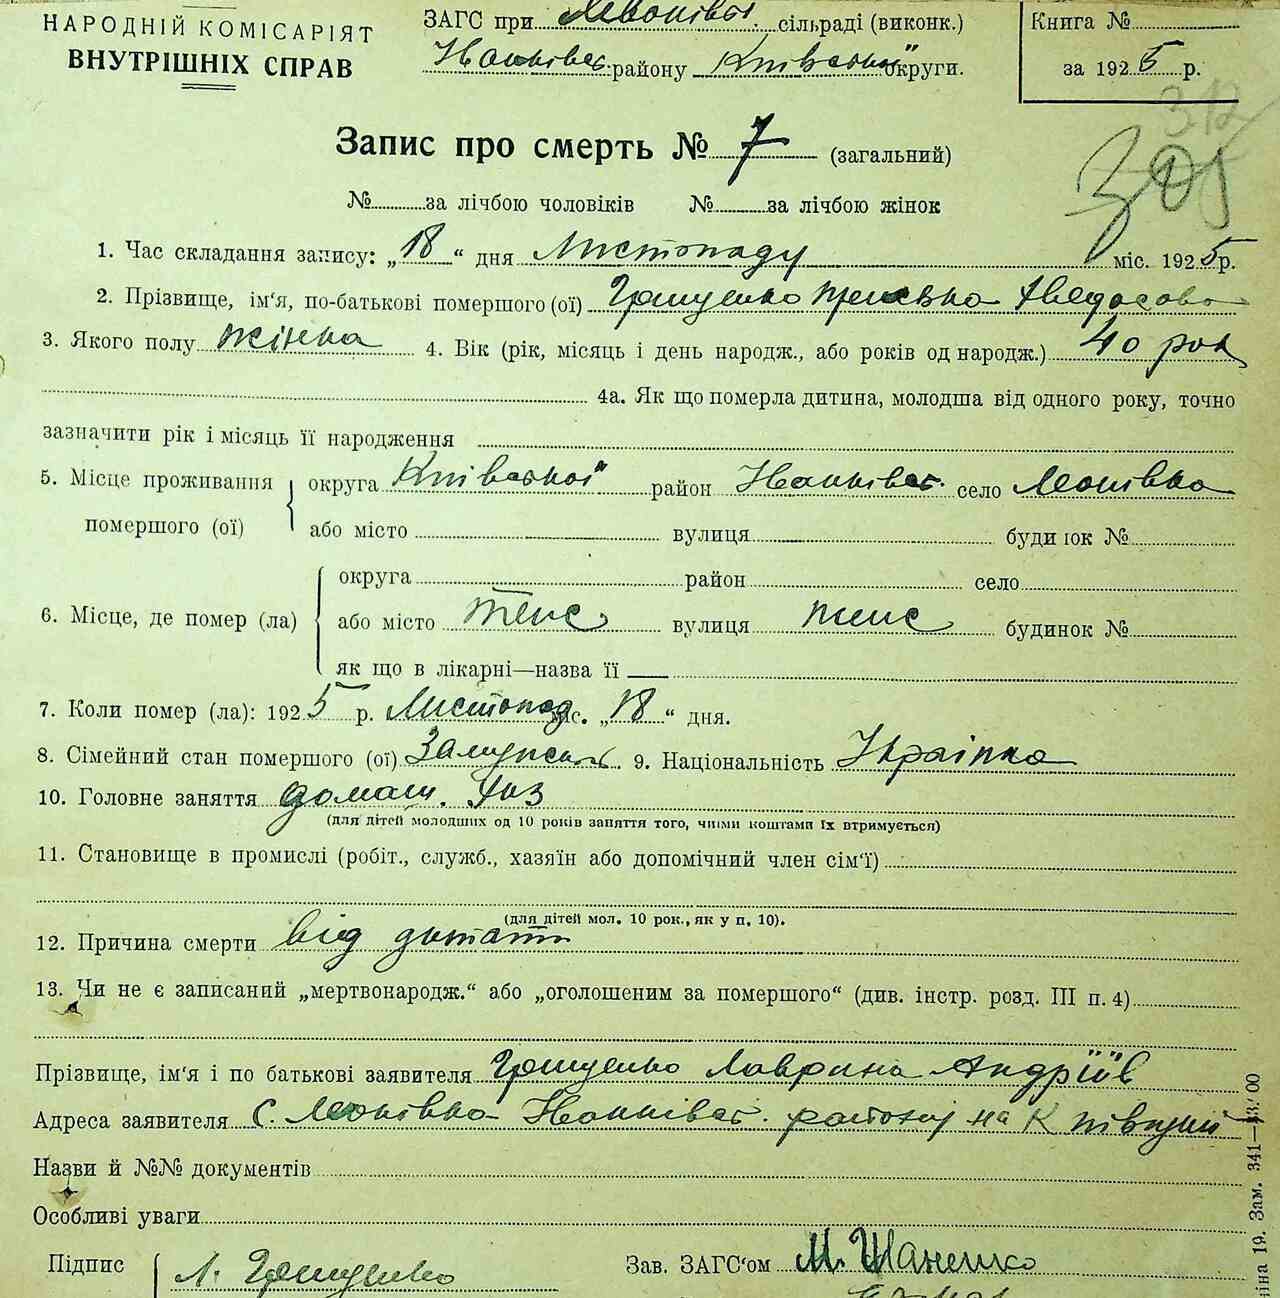 НАРОДНІЙ КОМІСАРІЯТ
ВНУТРІШНІХ СПРАВ
ЗАГС при Леонівк. сільраді (виконк.)
Іванківск. району Київської округи.
Книга №
за 1925 р.
312
Запис про смерть № 7 (загальний)
№ за лічбою чоловіків № за лічбою жінок
1. Час складання запису: „18“ дня Листопаду міс. 1925р.
2. Прізвище, ім'я, по-батькові помершого (ої) Грищенко
3. Якого полу жінка 4. Вік (рік, місяць і день народж., або років од народж.) 40 рок
4а. Як що померла дитина, молодша від одного року, точно
зазначити рік і місяць її народження
5. Місце проживання помершого (ої) округа Київської район Іванківск. село Леонівка
або місто вулиця будинок №
6. Місце, де помер (ла) округа район село
або місто теж вулиця теж будинок №
як що в лікарні—назва її
7. Коли помер (ла): 1925 р. Листопад міс. „18“ дня.
8. Сімейний стан помершого (ої) 9. Національність Українка
10. Головне заняття домаш. хоз
(для дітей молодших од 10 років заняття того, чиїми коштами їх втримується)
11. Становище в промислі (робіт., служб., хазяїн або допомічний член сім'ї)
(для дітей мол. 10 рок., як у п. 10).
12. Причина смерти від
13. Чи не є записаний „мертвонародж.“ або „оголошеним за помершого“ (див. інстр. розд. III п. 4)
Прізвище, ім'я і по батькові заявителя Грищенко Лаврина Андріїв
Адреса заявителя С. Леонівка Іванківск. району на Київщині
Назви й №№ документів
Особливі уваги
Підпис Л. Грищенко Зав. ЗАГС'ом М. Шаненко
19. Зам. 341—